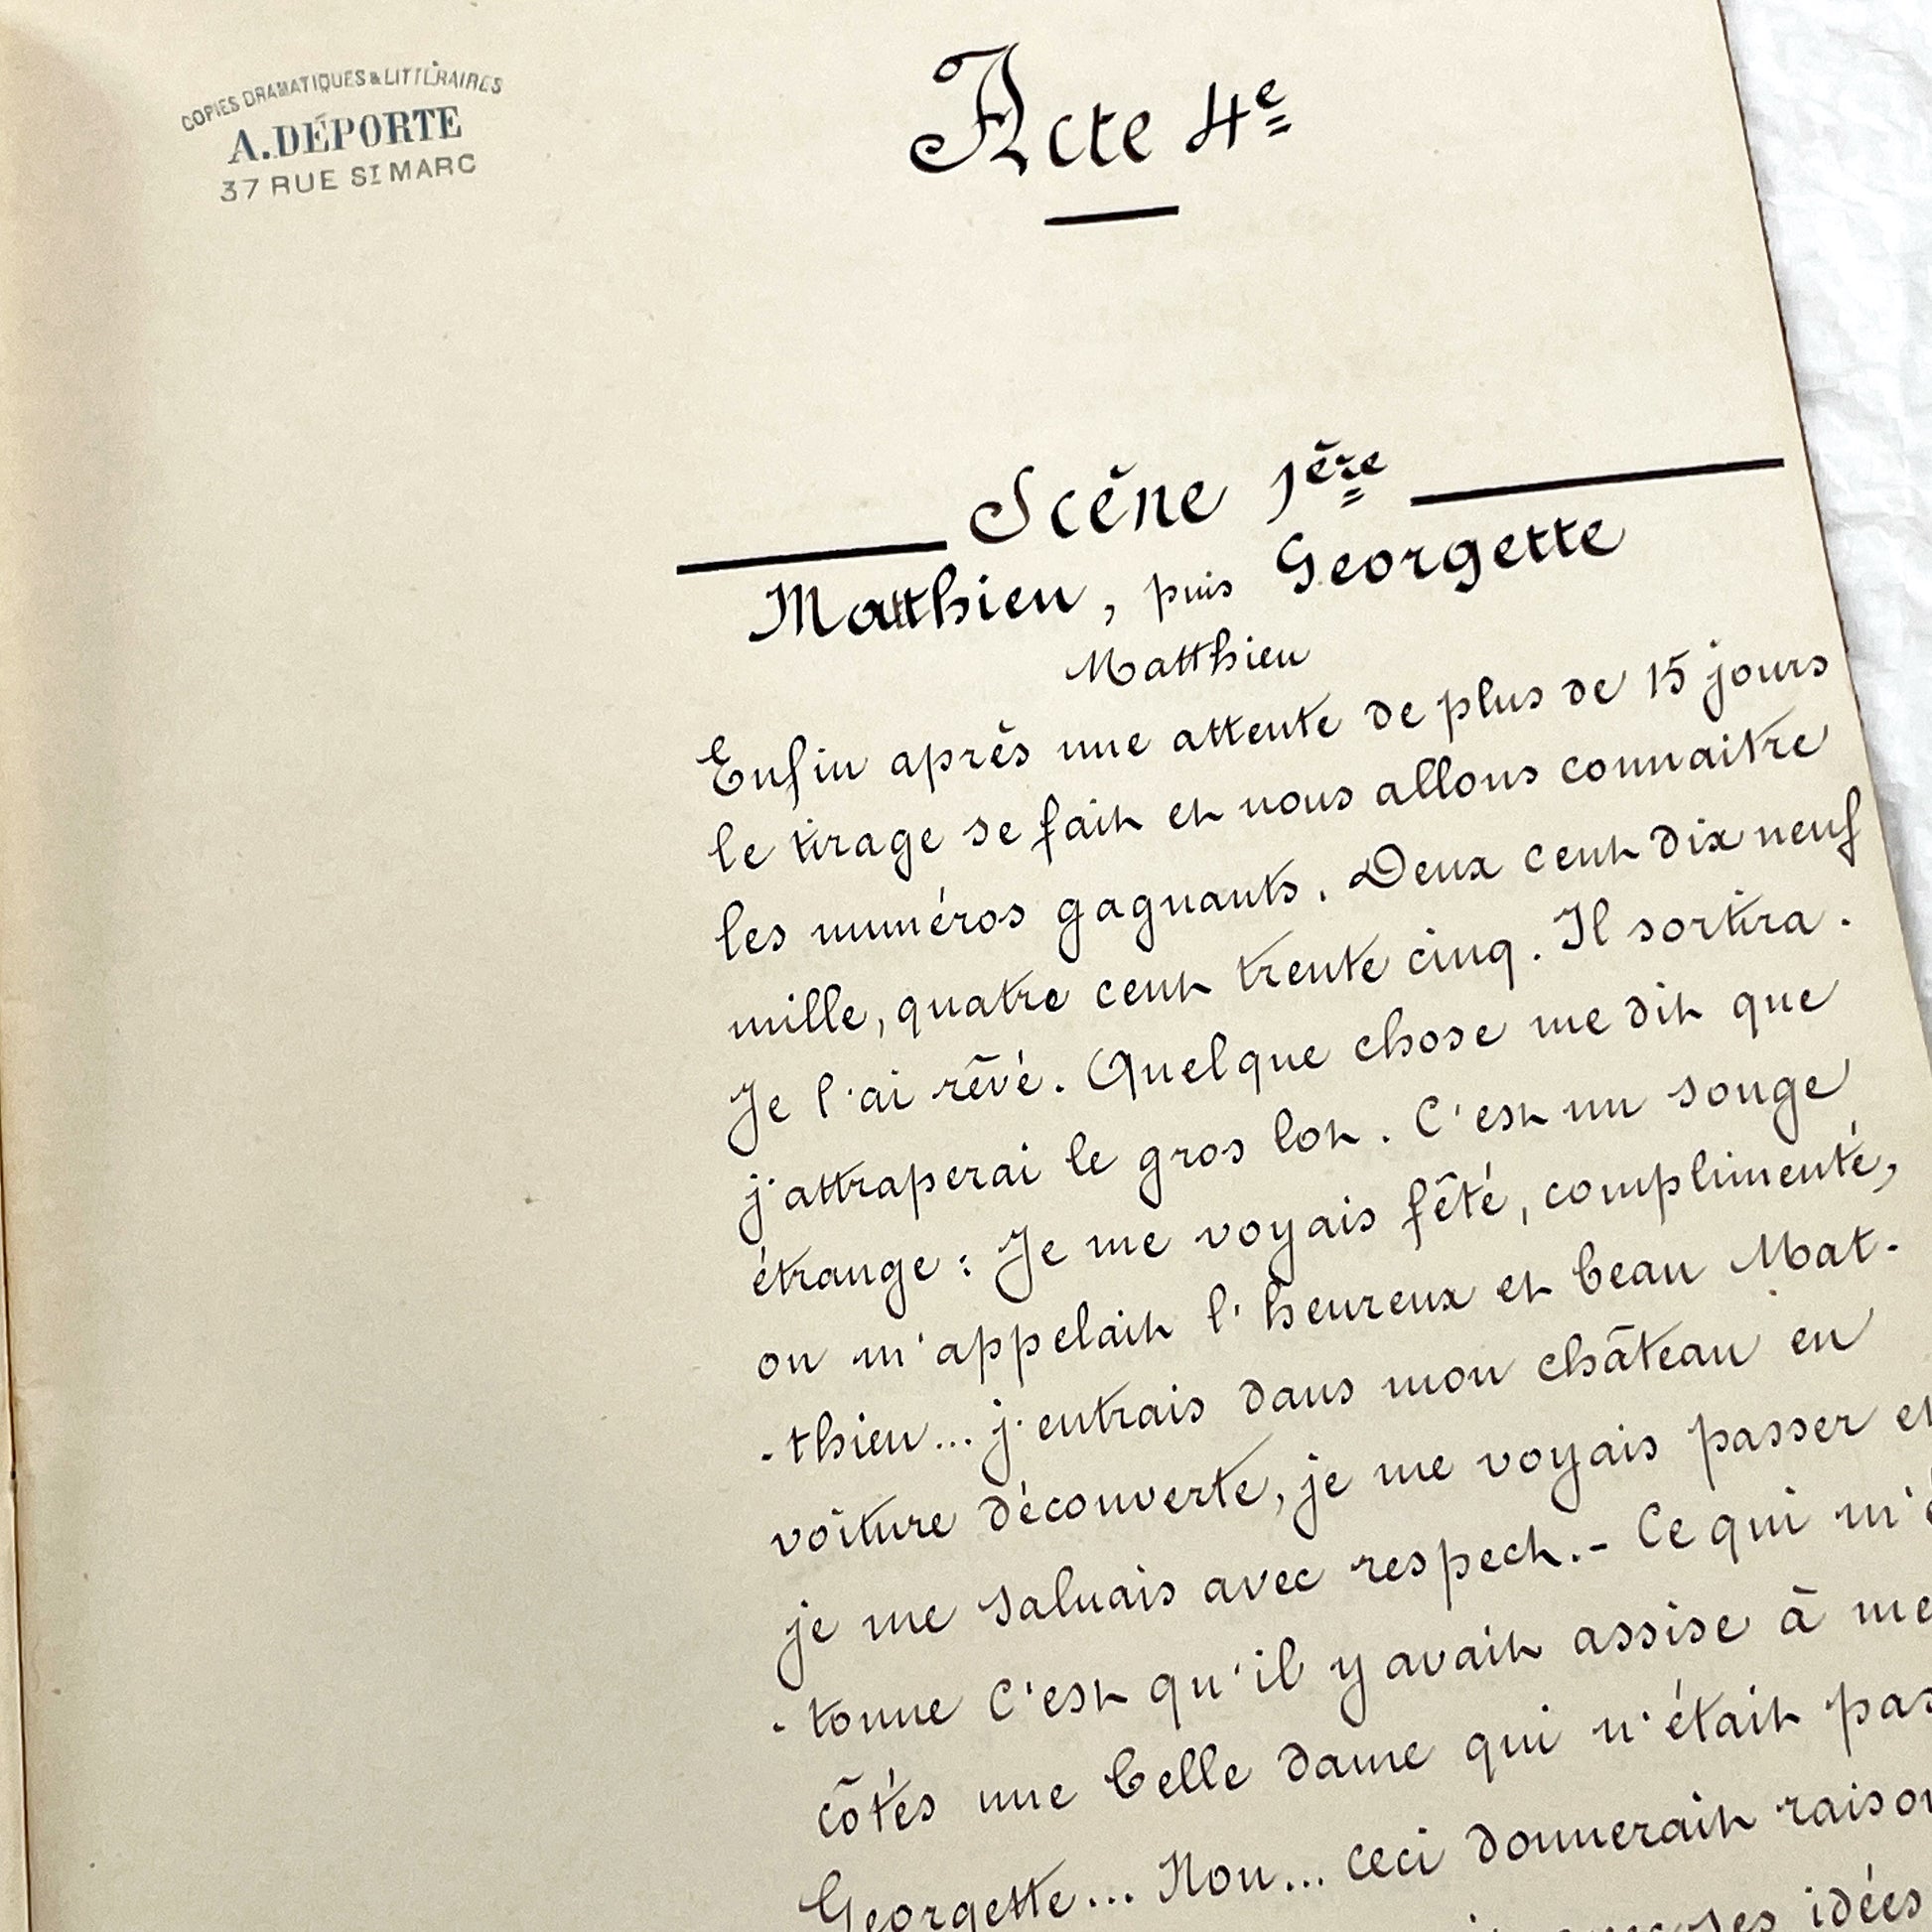 COPIES DRAMATIQUES & LITTÉRAIRES
A. DÉPORTE
37 RUE ST MARC
Acte 4e
Scène 1ère
Matthieu, puis Georgette
Matthieu
Enfin après une attente de plus de 15 jours
le tirage se fait et nous allons connaitre
les numéros gagnants. Deux cent dix neuf
mille, quatre cent trente cinq. Il sortira.
Je l'ai rêvé. Quelque chose me dit que
j'attraperai le gros lot. C'est un songe
étrange : Je me voyais fêté, complimenté,
on m'appelait l'heureux et beau Mat-
-thieu... j'entrais dans mon château en
voiture découverte, je me voyais passer et
je me saluais avec respect.- Ce qui m'é
-tonne c'est qu'il y avait assise à me
côtés une belle dame qui n'était pas
Georgette... Non... ceci donnerait raison
ses idées